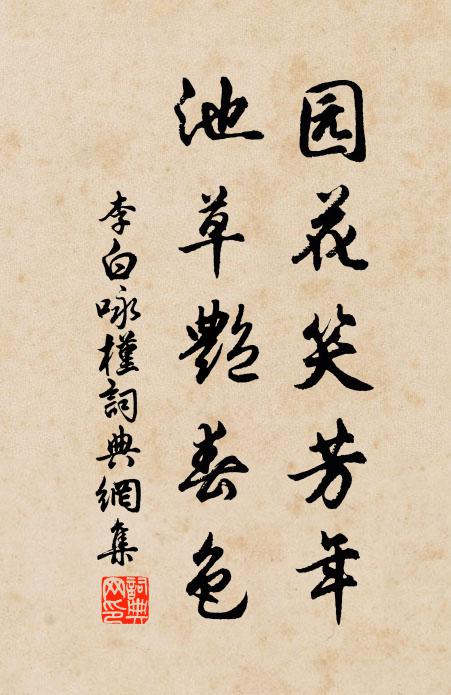 园花笑芳年
池草艳春色
李白咏槿詞典網集
詞典网印